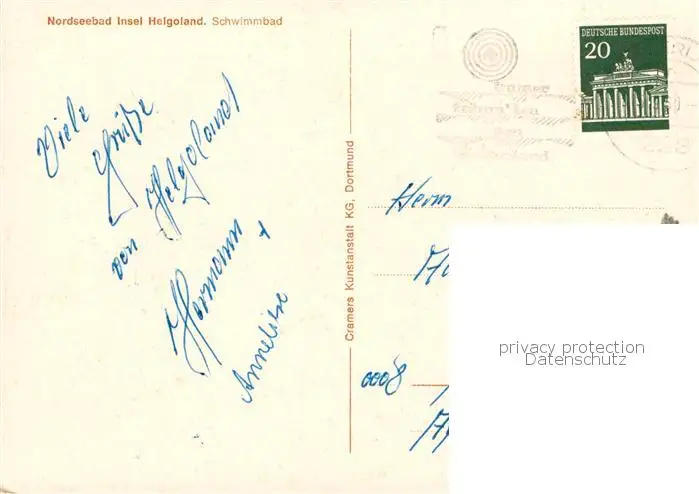 Nordseebad Insel Helgoland. Schwimmbad
Viele
Grüße
von Helgoland
Hermann +
Anneliese
Cramers Kunstanstalt KG, Dortmund
DEUTSCHE BUNDESPOST
20
Herrn
0008
privacy protection
Datenschutz